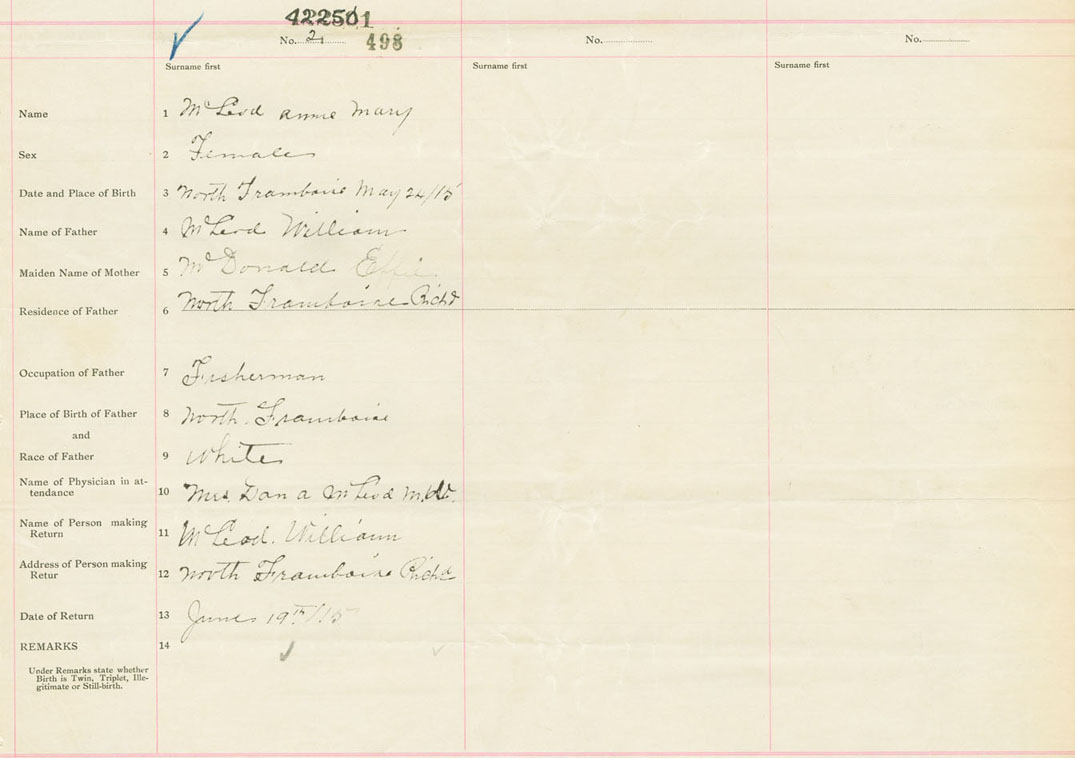 422501
No. 2, 498 No. No.
Surname first Surname first Surname first
Name 1 McLeod Annie Mary
Sex 2 Female
Date and Place of Birth 3 North Framboise May 24/15
Name of Father 4 McLeod William
Maiden Name of Mother 5 McDonald Effie
Residence of Father 6 North Framboise Richd
Occupation of Father 7 Fisherman
Place of Birth of Father 8 North Framboise
and
Race of Father 9 White
Name of Physician in at-
tendance 10 Mrs. Dan A McLeod
Name of Person making
Return 11 McLeod. William
Address of Person making
Retur 12 North Framboise Richd
Date of Return 13 June 19th/15
REMARKS 14
Under Remarks state whether
Birth is Twin, Triplet, Ille-
gitimate or Still-birth.